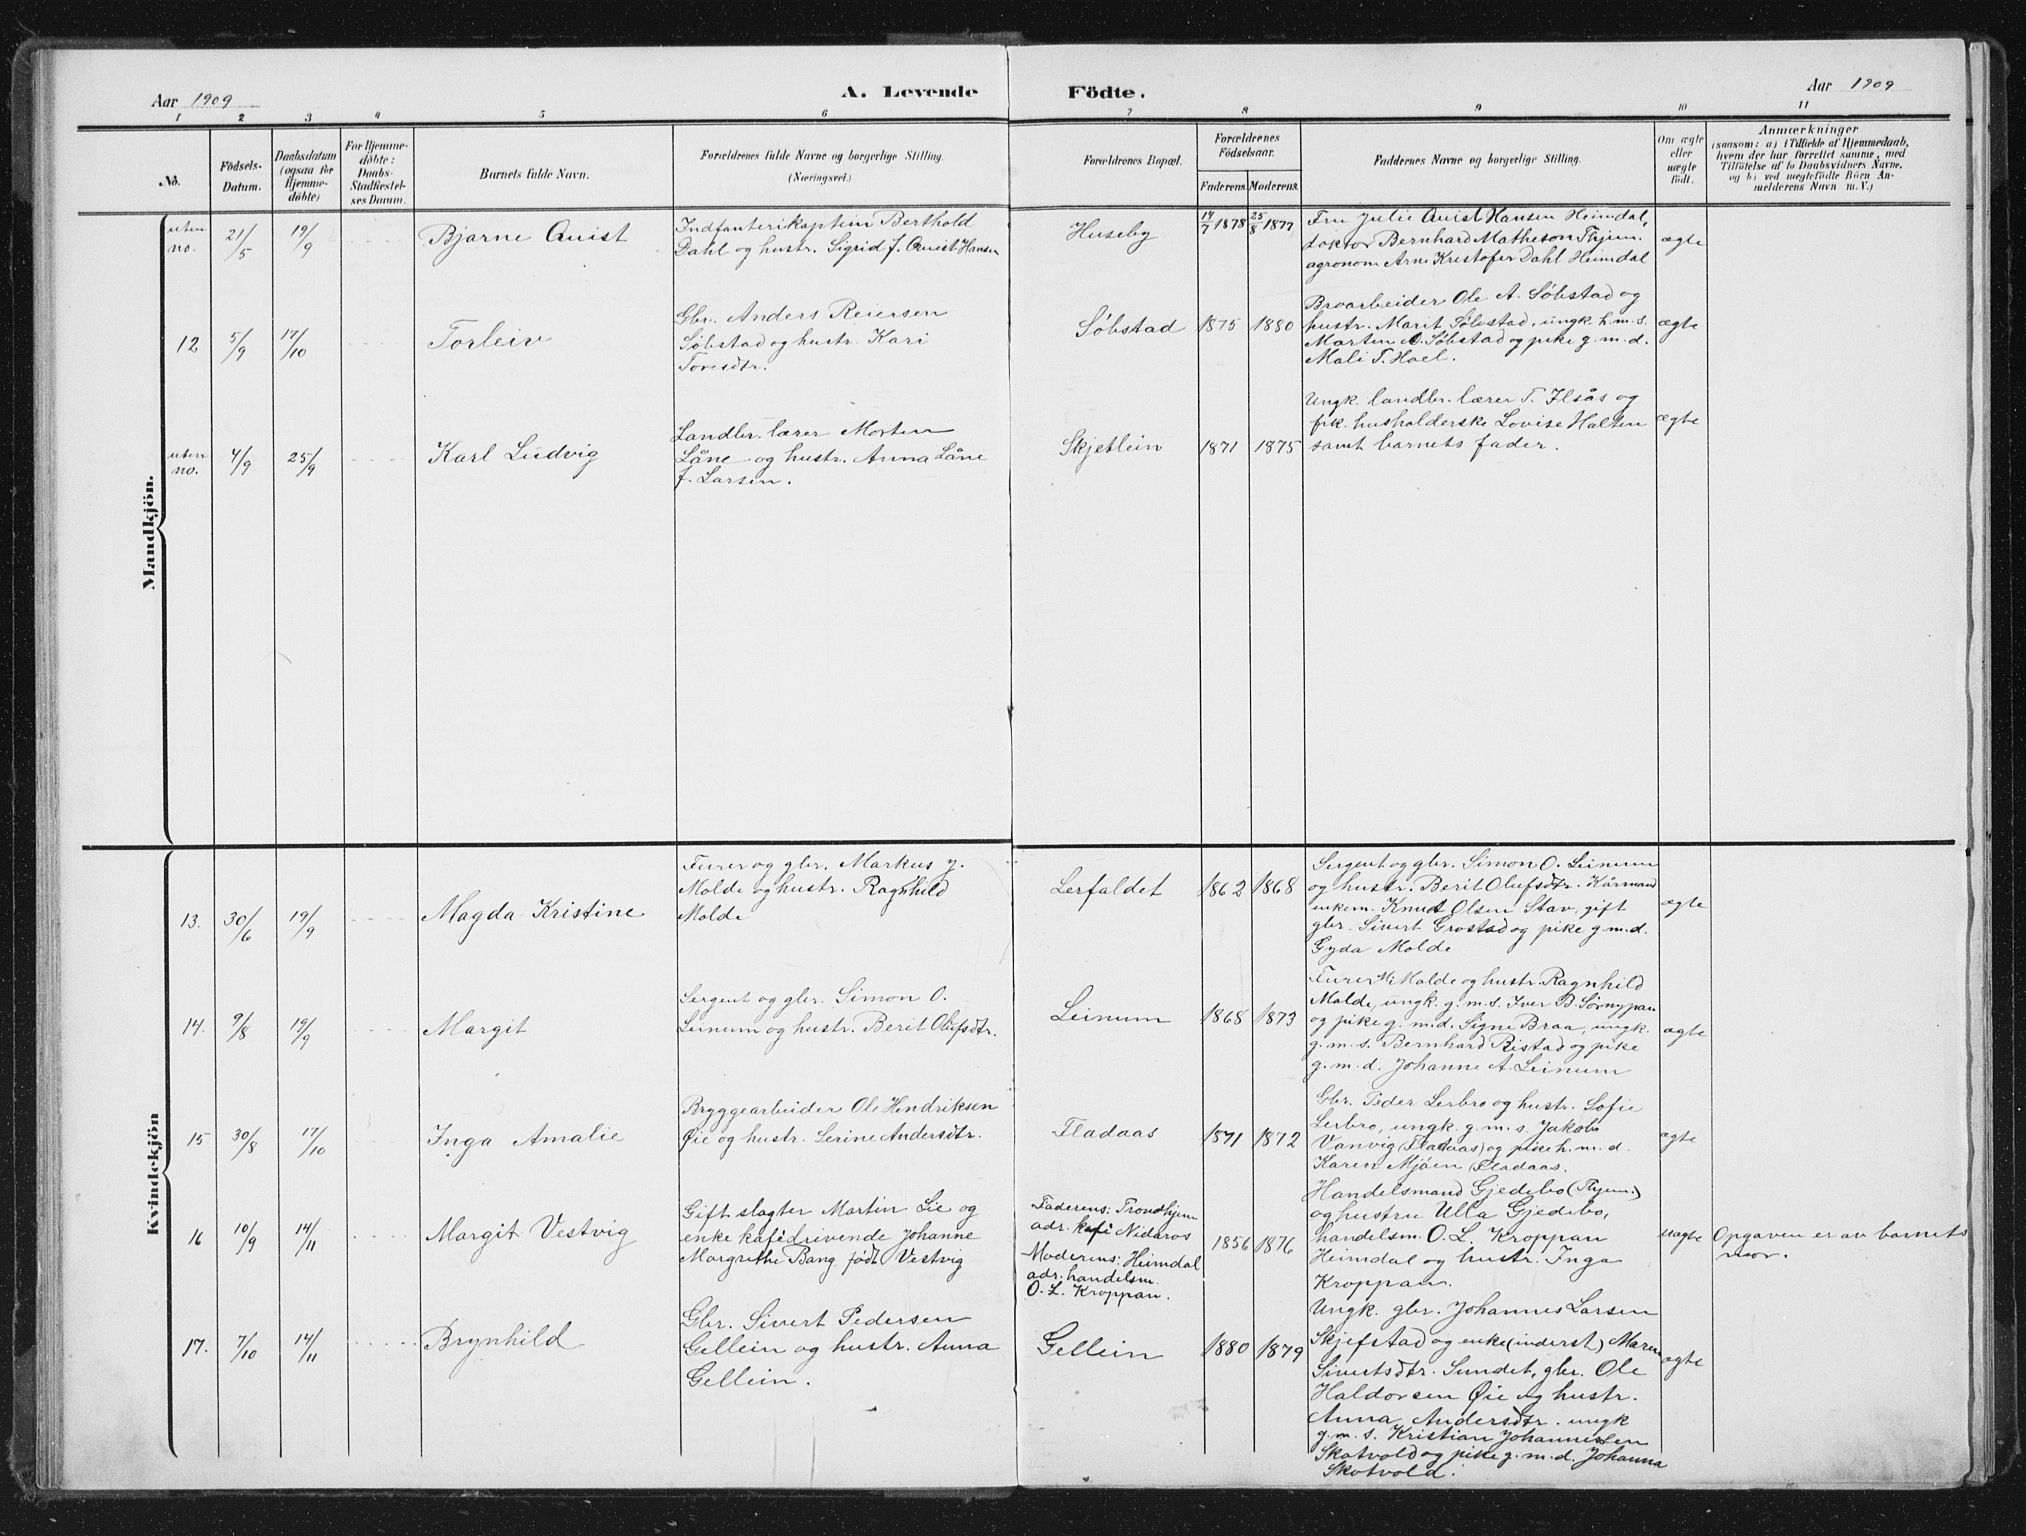 Aar 1909
A. Levende
Födte.
Aar 1909
1 2 3 4 5 6 7 8 9 10 11
No.
Födsels-
Datum.
Daabsdatum
(ogsaa for
Hjemme-
döbte)
For Hjemme-
döbte:
Daabs-
Stadfestel-
ses Datum.
Barnets fulde Navn.
Forældrenes fulde Navne og borgerlige Stilling.
(Næringsvei.)
Forældrenes Bopæl.
Forældrenes
Födselsaar.
Faderens. Moderens.
Faddernes Navne og borgerlige Stilling.
Om ægte
eller
uægte
födt.
Anmærkninger
(saasom: a) i Tilfælde af Hjemmedaab,
hvem der har forrettet samme, med
Tilföielse af to Daabsvidners Navne.
og b) ved uegtefödte Börn An-
melderens Navn m. V.)
Mandkjön.
uten
no.
21/5
19/9
Bjarne Quist
Indfanterikaptein Berthold
Dahl og hustr. Sigrid f. Quist Hansen
Huseby
14/7 1878
25/8 1877
Fru Julie Quist Hansen Heimdal,
doktor Bernhard Matheson Thjem.
agronom Arne Kristofer Dahl Heimdal
ægte
12
5/9
17/10
Torleiv
Gbr. Anders Reiersen
Söbstad og hustr. Kari
Toresdtr.
Söbstad
1875
1880
Broarbeider Ole A. Söbstad og
hustr. Marit Söbstad, ungk. h.m.s.
Morten O. Söbstad og pike g.m.d.
Mali T. Hoel.
ægte
uten
no.
4/9
25/9
Karl Ludvig
Landbr. lærer Morten
Låne og hustr. Anna Låne
f. Larsen.
Skjetlein
1871
1875
Ungk. landbr. lærer T. Ilsås og
frk. husholderske Lovise Halten
samt barnets fader.
ægte
Kvindekjön
13.
30/6
19/9
Magda Kristine
Furer og gbr. Markus J.
Molde og hustr. Ragnhild
Molde
Lerfaldet
1862
1868
Sergent og gbr. Simon O. Leinum
og hustr. Berit Olufsdtr. Kårmand
enkem. Knut Olsen Stav, gift
gbr. Sivert Grostad og pike g.m.d.
Gyda Molde
ægte
14.
9/8
19/9
Margit
Sergent og gbr. Simon O.
Leinum og hustr. Berit Olufsdtr.
Leinum
1868
1873
Furer M. Molde og hustr. Ragnhild
Molde, ungk. g.m.s. Iver B. Sörnypan
og pike g.m.d. Signe Braa, ungk.
g.m.s. Bernhard Ristad og pike
g.m.d. Johanne A. Leinum
ægte
15
30/8
17/10
Inga Amalie
Bryggearbeider Ole Hendriksen
Øie og hustr. Serine Andersdtr.
Fladaas
1871
1872
Gbr. Peder Lerbro og hustr. Sofie
Lerbro, ungk. g.m.s. Jakob
Vanvig (Fladaas) og pike h.m.d.
Karen Mjöen (Fladaas.
ægte
16
10/9
14/11
Margit Vestvig
Gift slagter Martin Lie og
enke kafédrivende Johanne
Margrethe Bang født Vestvig
Faderens: Trondhjem
adr. kafé Nidaros
Moderens: Heimdal
adr. handelsm.
O. L. Kroppan.
1856
1876
Handelsmand Gjedebo (Thjem.)
og hustru Ulla Gjedebo,
handelsm. O. L. Kroppan
Heimdal og hustr. Inga
Kroppan.
uægte
Opgaven er av barnets
mor.
17.
7/10
14/11
Brynhild
Gbr. Sivert Pedersen
Gellein og hustr. Anna
Gellein.
Gellein
1880
1879
Ungk. gbr. Johannes Larsen
Skjefstad og enke (inderst) Maren
Sivertsdtr. Sundet, gbr. Ole
Haldorsen Øie og hustr.
Anna Andersdtr. ungk
g.m.s. Kristian Johannessen
Skotvold og pike g.m.d. Johanna
Skotvold.
ægte